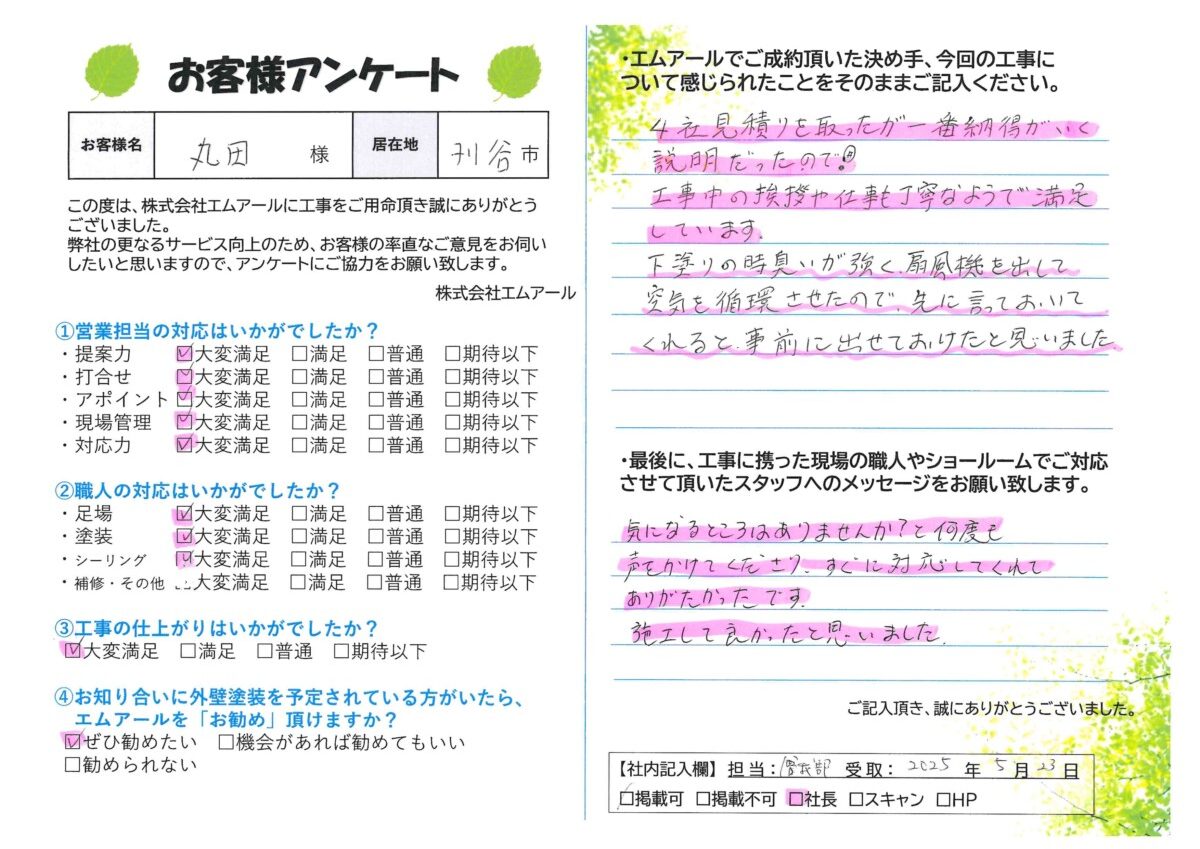 お客様アンケート
お客様名 丸田 様 居在地 刈谷 市
この度は、株式会社エムアールに工事をご用命頂き誠にありがとう
ございました。
弊社の更なるサービス向上のため、お客様の率直なご意見をお伺い
したいと思いますので、アンケートにご協力をお願い致します。
株式会社エムアール
①営業担当の対応はいかがでしたか？
・提案力 ☑大変満足 □満足 □普通 □期待以下
・打合せ ☑大変満足 □満足 □普通 □期待以下
・アポイント ☑大変満足 □満足 □普通 □期待以下
・現場管理 ☑大変満足 □満足 □普通 □期待以下
・対応力 ☑大変満足 □満足 □普通 □期待以下
②職人の対応はいかがでしたか？
・足場 ☑大変満足 □満足 □普通 □期待以下
・塗装 ☑大変満足 □満足 □普通 □期待以下
・シーリング ☑大変満足 □満足 □普通 □期待以下
・補修・その他 □大変満足 □満足 □普通 □期待以下
③工事の仕上がりはいかがでしたか？
☑大変満足 □満足 □普通 □期待以下
④お知り合いに外壁塗装を予定されている方がいたら、
エムアールを「お勧め」頂けますか？
☑ぜひ勧めたい □機会があれば勧めてもいい
□勧められない
・エムアールでご成約頂いた決め手、今回の工事に
ついて感じられたことをそのままご記入ください。
4社見積りを取ったが一番納得がいく
説明だったので!
工事中の挨拶や仕事も丁寧なようで満足
しています。
下塗りの時臭いが強く、扇風機を出して
空気を循環させたので、先に言っておいて
くれると、事前に出せておけたと思いました
・最後に、工事に携った現場の職人やショールームでご対応
させて頂いたスタッフへのメッセージをお願い致します。
気になるところはありませんか？と何度も
声をかけてくださり、すぐに対応してくれて
ありがたかったです。
施工して良かったと思いました。
ご記入頂き、誠にありがとうございました。
【社内記入欄】担当：曽我部 受取： 2025 年 5 月 23 日
□掲載可 □掲載不可 □社長 □スキャン □HP